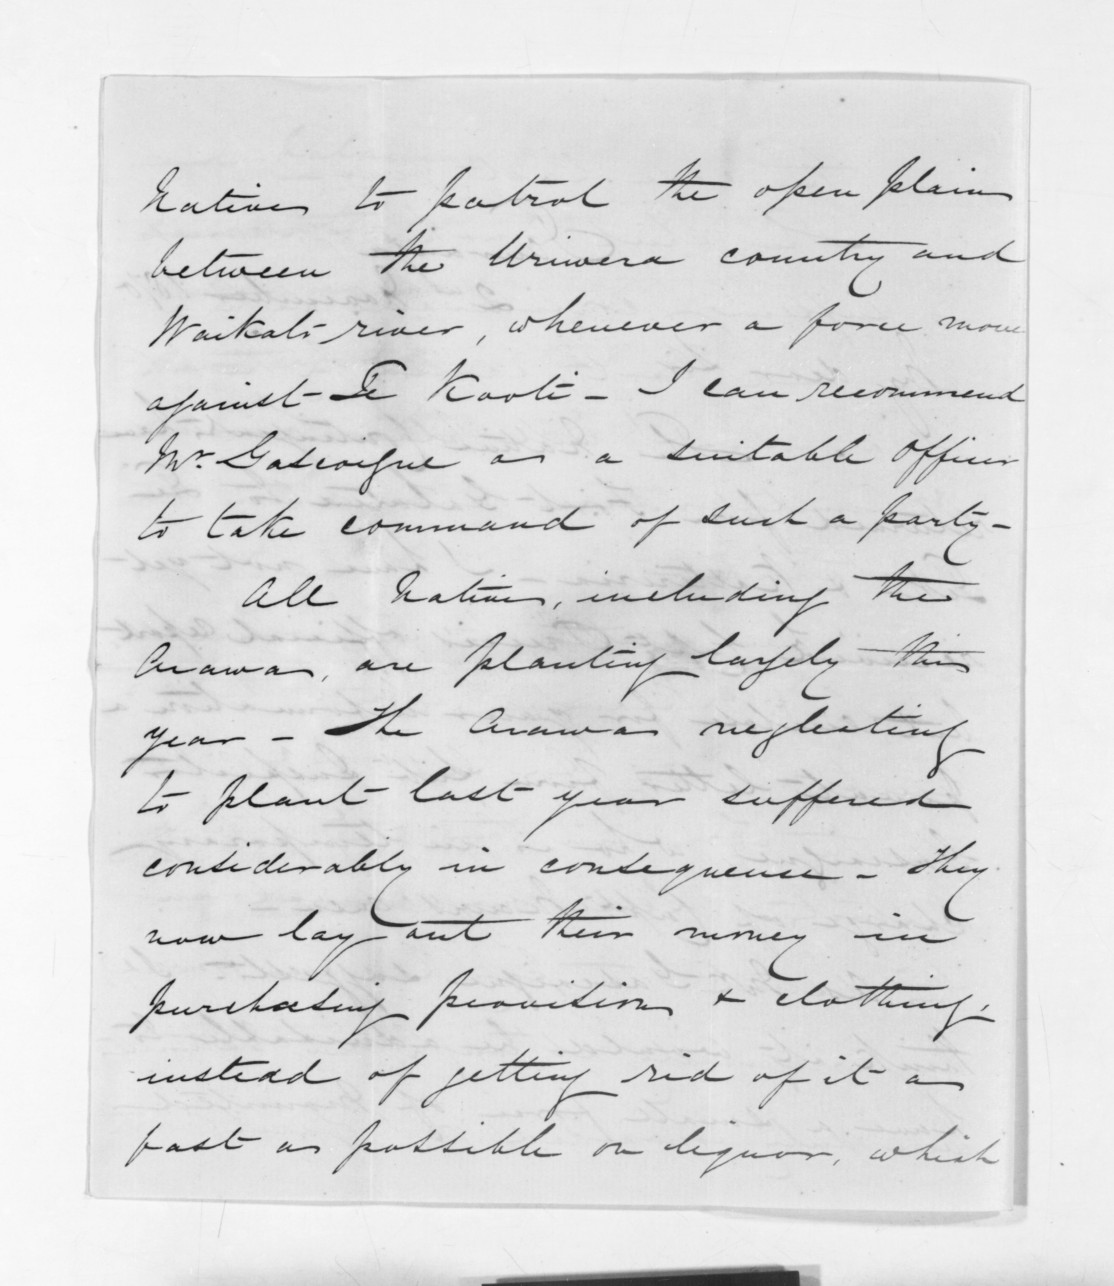 Natives to patrol the open plains
between the Uriwera country and
Waikato river, whenever a force move
against Te Kooti – I can recommend
Mr. Gascoigne as a suitable Officer
to take command of such a party –
All Natives, including the
Arawas, are planting largely this
year – The Arawas neglecting
to plant last year suffered
considerably in consequence – They
now lay out their money in
purchasing provisions & clothing,
instead of getting rid of it as
fast as possible on liquor, which